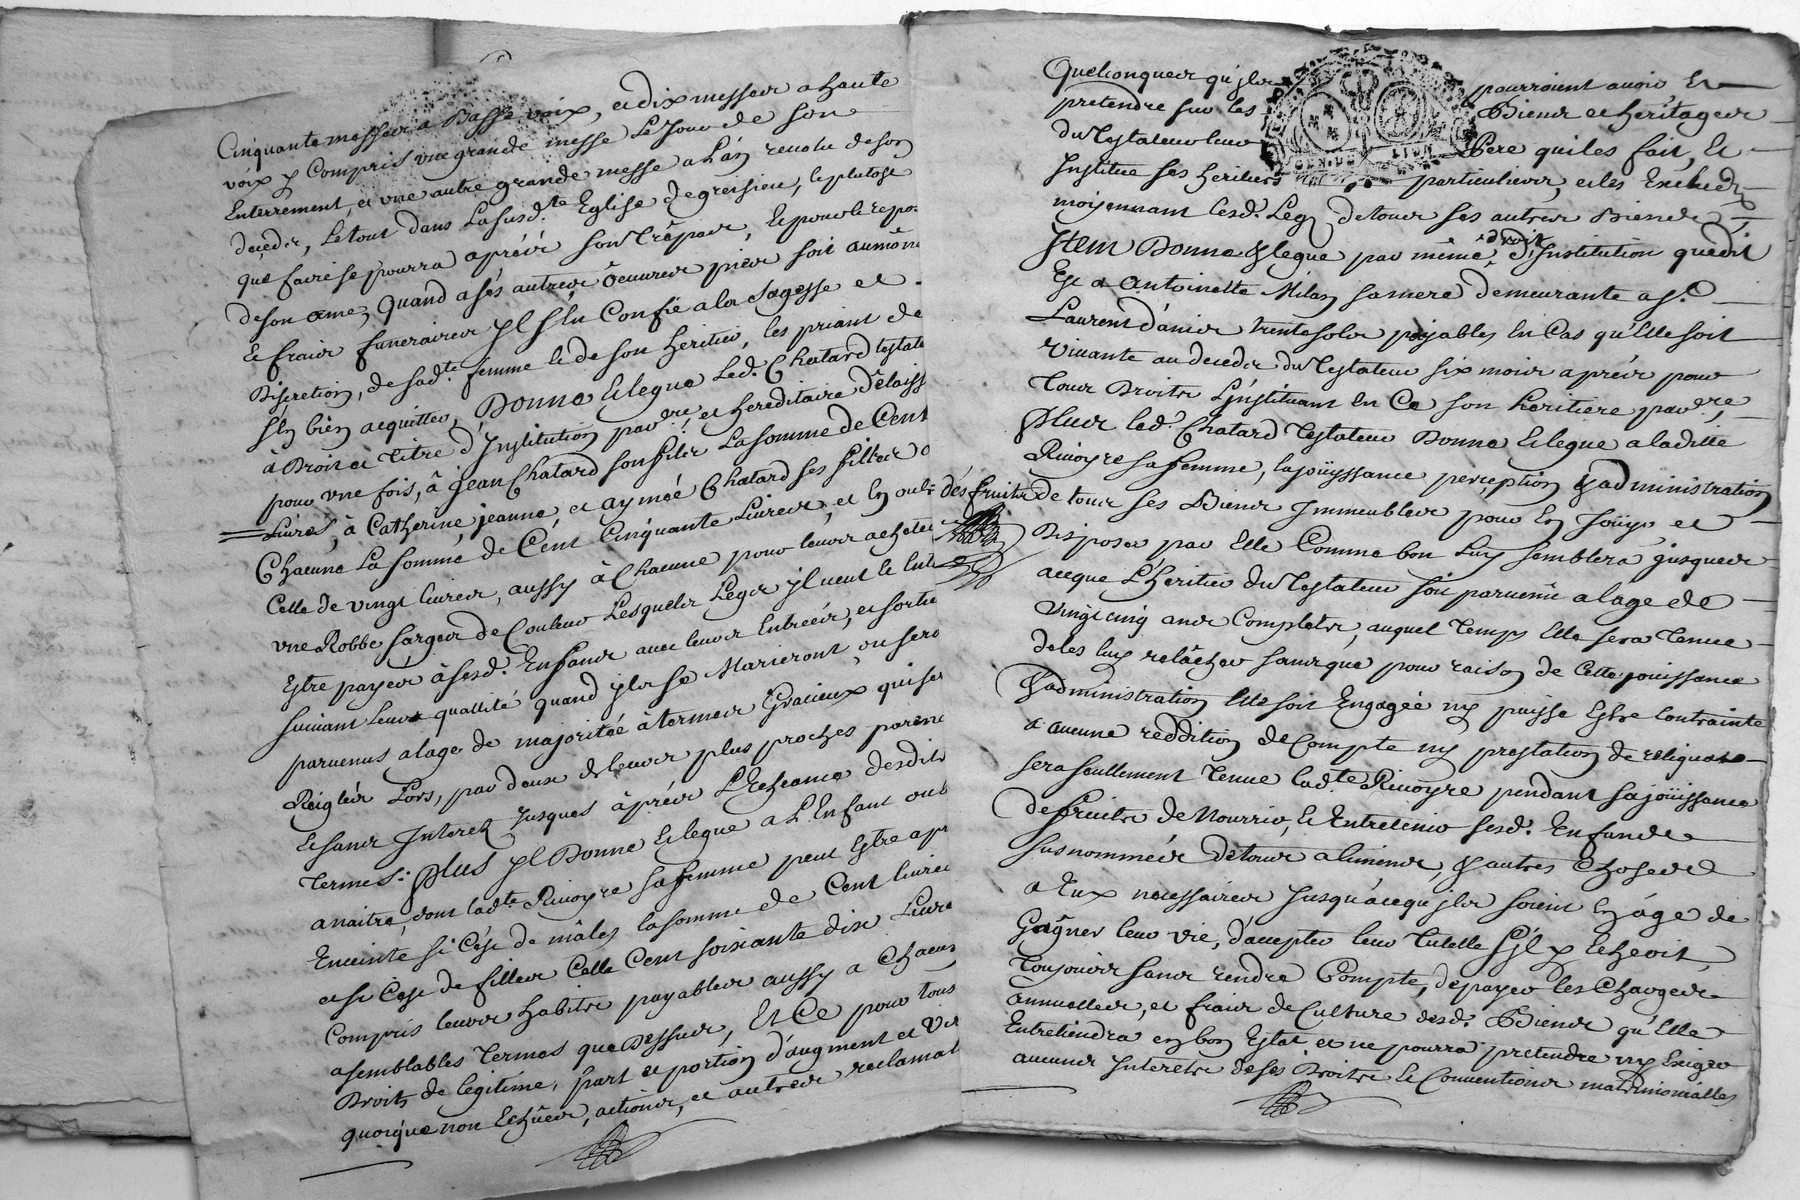 Cinquante messes a Basse voix, et dix messes a haute
voix y Compris une grande messe Le Jour de son
Enterrement, et une autre grande messe a L'an revolu de son
decedz, Le tout dans La susd.te Eglise de gresieu, le plutost
que faire se pourra aprés son Trêpas, Et pour le repo
de son ame, Quand a sés autres oeuvres pies soit aumôn
Et frais funeraires yl s'en Confie a la Sagesse et
Discretion, de sad.te femme et de son heritier, les priant de
s'En bien acquitter, Donne Et legue Led. Chatard testate
à Droit et Titre d'Institution par.re et hereditaire délaiss
pour une fois, à Jean Chatard son fils La somme de Cent
Livres, à Catherine, jeanne, et aymeé Chatard ses filles
Chacune La somme de Cent Cinquante Livres, et En outre
Celle de vingt livres, aussy à Chacune pour leurs achete
une Robbe sarges de Couleur Lesquels Légs yl veut
Estre payés à sesd. Enfans avec leurs Entreés, et sortie
suivant leur quallité quand yls se Marieront, ou sero
parvenus a lage de majoriteé à termes Gracieux qui ser
Reiglés Lors, par deux de leurs plus proches paren
Et sans Interetz Jusques àprés L'Echeance desdits
Termes: Plus yl Donne Et legue a L'Enfant ou
a naitre, dont lad.te Rivoyre sa femme peut Estre
Enceinte si C'ést de mâles la somme de Cent livres
et si C'ést de filles Celle Cent soixante dix Livre
Compris leurs habits payables aussy a Chacun
a semblables Termes que Dessus, Et Ce pour tous
Droits de legitime, part et portion d'augment et
quoique non Echûes, actions, et autres reclamat
Quelconques qu'yls pourroient avoir, Et
pretendre sur les Biens et heritages
du Testateur leur Pere qui les fait, Et
Institue ses heritiers particuliers, et les Exclud
moyennant lesd. Legs de tous ses autres Biens
GEN. DE LION
Item Donne & legue par même droit d'Institution que dit
Est a Antoinette Milan sa mere demeurante a S.t
Laurent d'anier trente sols payables En Cas qu'Elle soit
vivante au decedz du Testateur six mois aprés pour
Tous Droits L'instituant En Ce son heritiere par.re,
Plus led. Chatard Testateur Donne Et legue a laditte
Rivoyre sa femme, la joüyssance perception & administration
dés fruits de tous ses Biens Immeubles pour En Joüyr et
Disposer par Elle Comme bon Luy semblera jusques
acque L'heritier du Testateur soit parvenû a lage de
vingt cinq ans Complets, auquel Temps Elle sera Tenue
de les luy relâcher sans que pour raison de Cette joüissance
& administration Elle soit Engageé ny puisse Estre Contrainte
a aucune reddition de Compte ny prestation de reliquats
sera seullement Tenue lad.te Rivoyre pendant sa joüissance
de fruits de Nourrir, Et Entretenir sesd. Enfans
susnommés de tous alimens, & autres Choses
a Eux necessaires Jusqu'acequ'yls soient En âge de
Gâgner leur vie, d'accepter leur Tutelle s'yl y Echeoit
Toujours sans rendre Compte, de payer les Charges
annuelles, et frais de Culture desd. Biens qu'Elle
Entretiendra en bon Estat et ne pourra pretendre ny Exiger
aucuns Interets de sés Droits Et Conventions matrimonialles